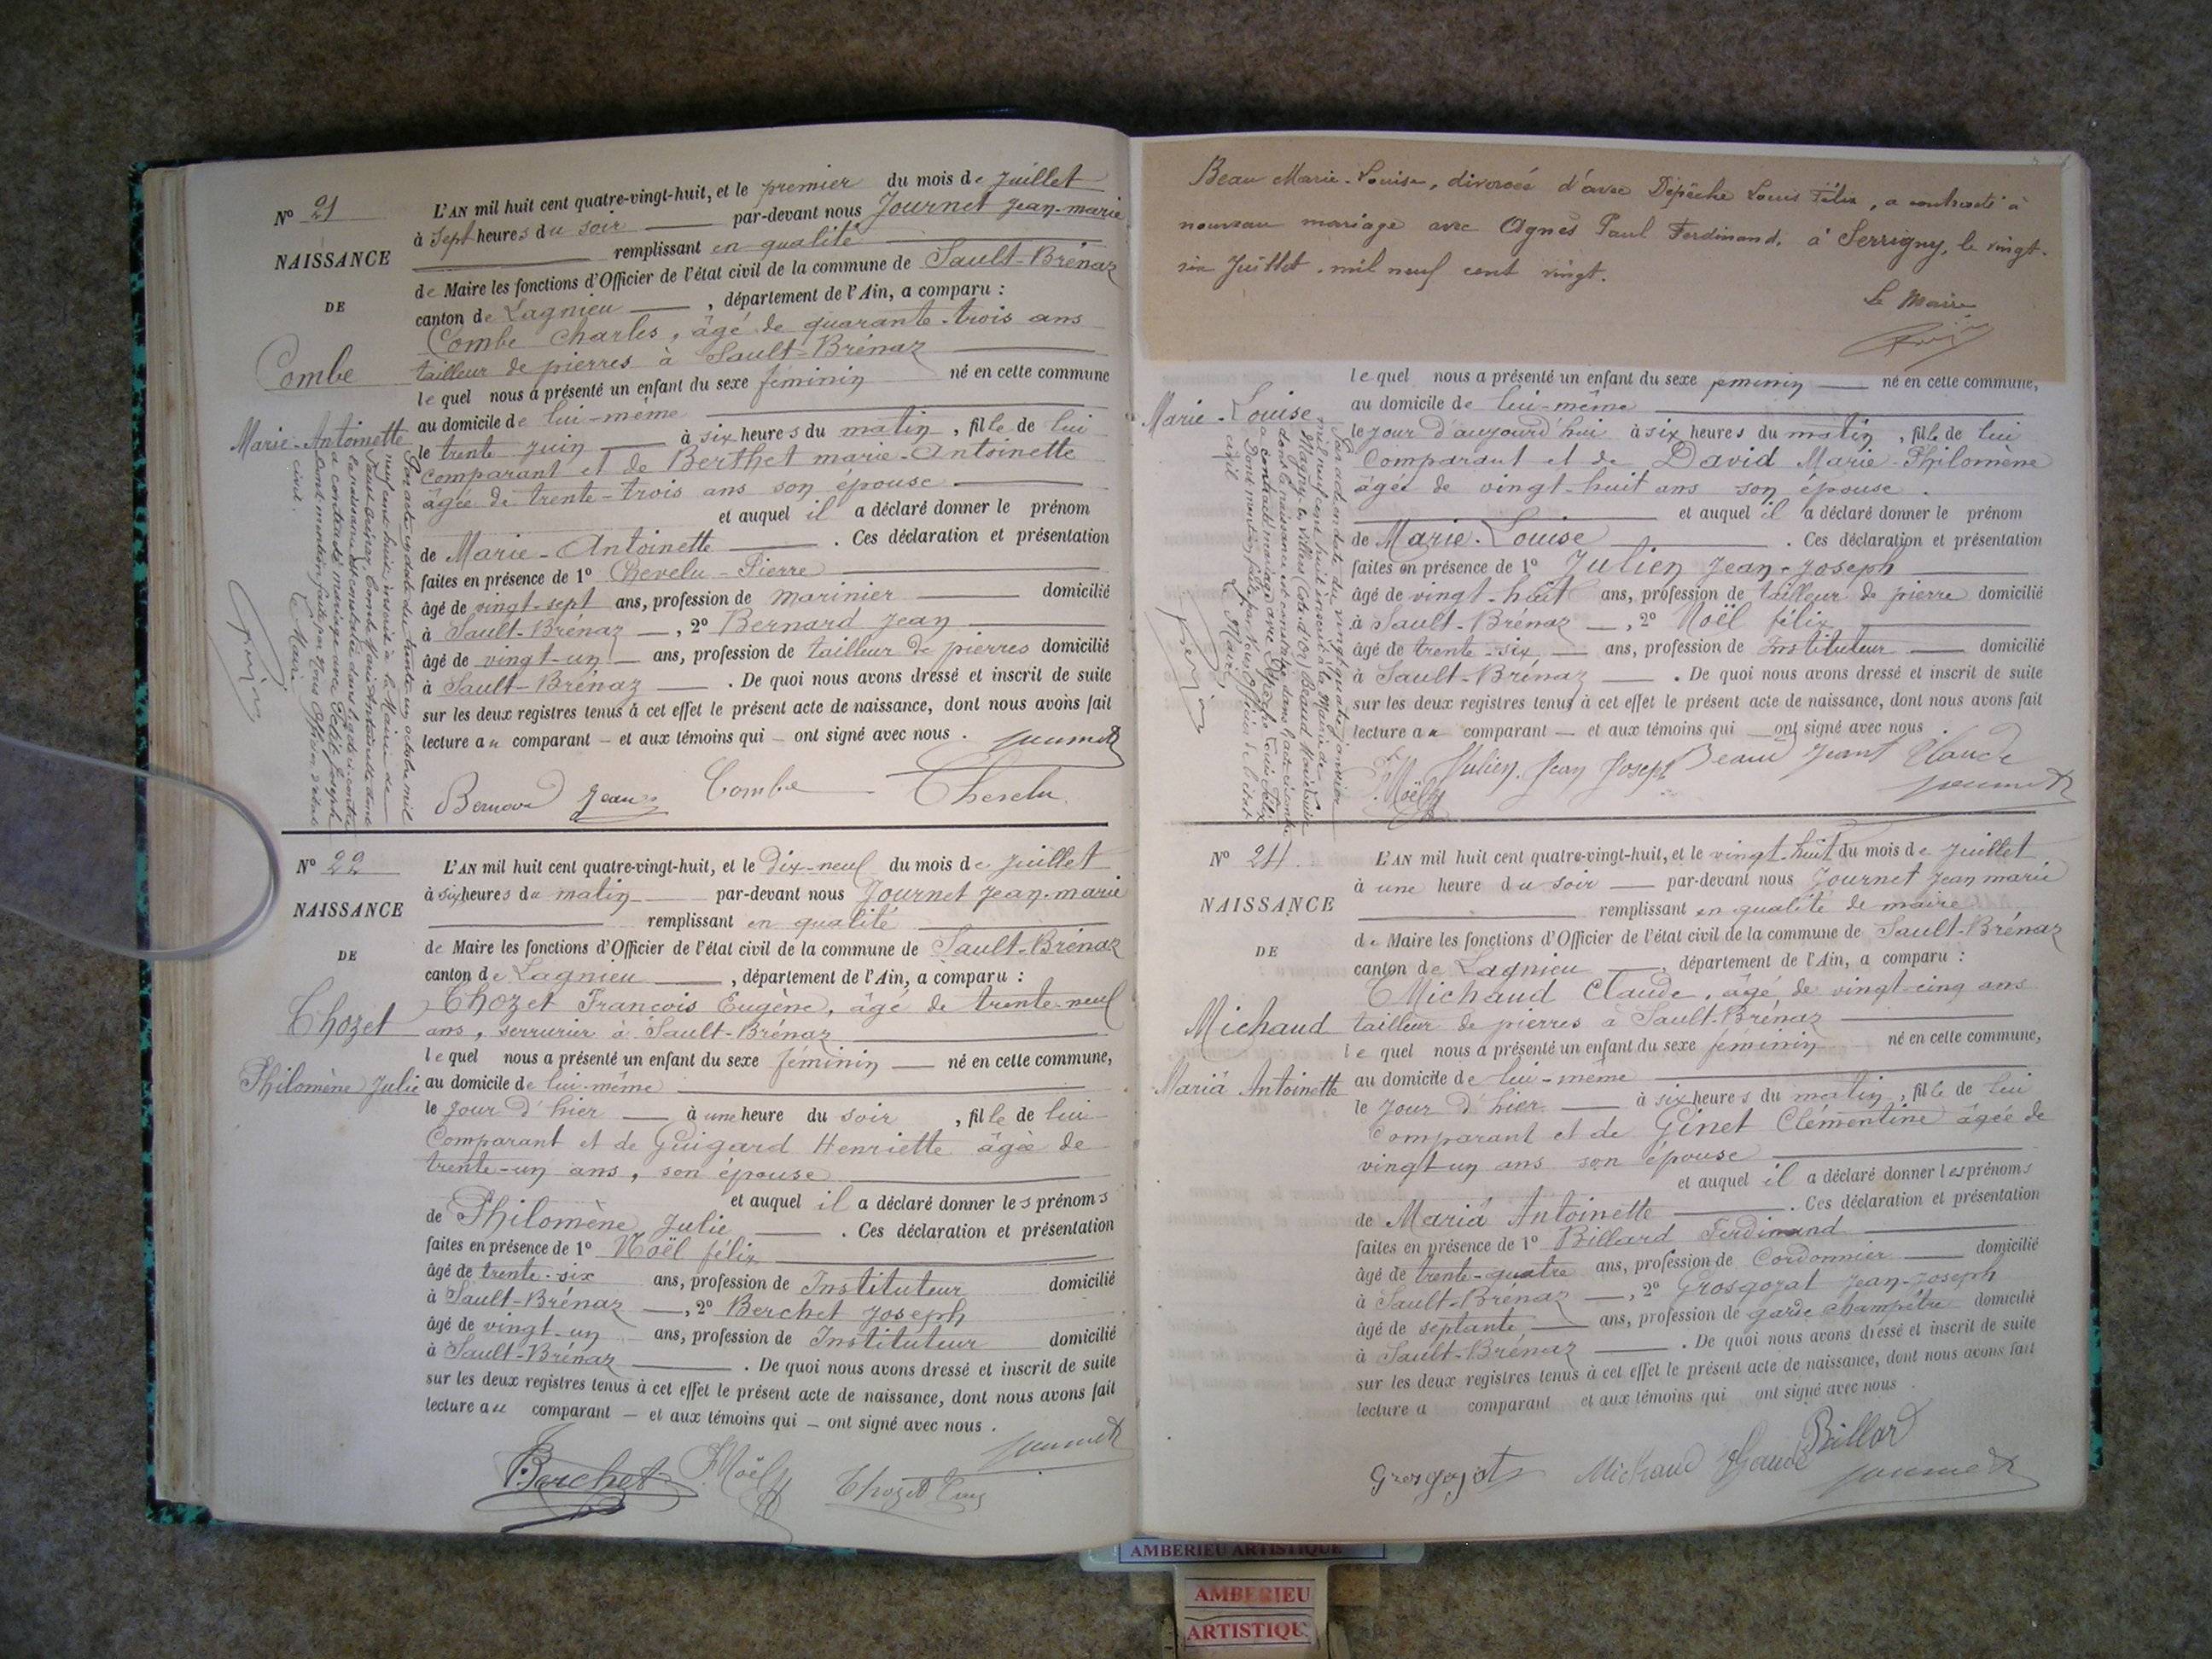 N° 21
NAISSANCE
DE
Combe
Marie-Antoinette
L'AN mil huit cent quatre-vingt-huit, et le premier du mois de juillet
à Sept heures du soir par-devant nous Journet Jean-marie
remplissant en qualité
de Maire les fonctions d'Officier de l'état civil de la commune de Sault-Brénaz
canton de Lagnieu, département de l'Ain, a comparu :
Combe Charles, âgé de quarante-trois ans
tailleur de pierres à Sault-Brénaz
lequel nous a présenté un enfant du sexe féminin né en cette commune
au domicile de lui-même
le trente juin à six heures du matin, fille de lui
Comparant et de Berthet marie-Antoinette
âgée de trente-trois ans son épouse
et auquel il a déclaré donner le prénom
de Marie-Antoinette. Ces déclaration et présentation
faites en présence de 1° Chevelu-Pierre
âgé de vingt-sept ans, profession de marinier domicilié
à Sault-Brénaz, 2° Bernard Jean
âgé de vingt-un ans, profession de tailleur de pierres domicilié
à Sault-Brénaz. De quoi nous avons dressé et inscrit de suite
sur les deux registres tenus à cet effet le présent acte de naissance, dont nous avons fait
lecture au comparant — et aux témoins qui — ont signé avec nous.
Journet
Bernard Jean Combe Chevelu
Par acte en date du trente un octobre mil
neuf cent huit, inscrit à la Mairie de
Sault-Brénaz, Combe Marie Antoinette dont
la naissance est constatée dans l'acte ci-contre
a contracté mariage avec Joseph
Dont mention faite par nous Officier d'état
civil.
Le Maire
N° 22
NAISSANCE
DE
Chozet
Philomène Julie
L'AN mil huit cent quatre-vingt-huit, et le Dix-neuf du mois de Juillet
à six heures du matin par-devant nous Journet Jean-marie
remplissant en qualité
de Maire les fonctions d'Officier de l'état civil de la commune de Sault-Brénaz
canton de Lagnieu, département de l'Ain, a comparu :
Chozet François Eugène, âgé de trente-neuf
ans, serrurier à Sault-Brénaz
lequel nous a présenté un enfant du sexe féminin né en cette commune,
au domicile de lui-même
le jour d'hier à une heure du soir, fille de lui
Comparant et de Guigard Henriette âgée de
trente-un ans, son épouse
et auquel il a déclaré donner les prénoms
de Philomène Julie. Ces déclaration et présentation
faites en présence de 1° Noël félix
âgé de trente-six ans, profession de Instituteur domicilié
à Sault-Brénaz, 2° Berchet Joseph
âgé de vingt-un ans, profession de Instituteur domicilié
à Sault-Brénaz. De quoi nous avons dressé et inscrit de suite
sur les deux registres tenus à cet effet le présent acte de naissance, dont nous avons fait
lecture au comparant — et aux témoins qui — ont signé avec nous.
Journet
Berchet F. Noël Chozet Eug
Beau Marie-Louise, divorcée d'avec Dépêche Louis Félix, a contracté à
nouveau mariage avec Agnès Paul Ferdinand, à Serrigny, le vingt-
six Juillet mil neuf cent vingt.
Le Maire
Marie-Louise
lequel nous a présenté un enfant du sexe féminin né en cette commune,
au domicile de lui-même
le jour d'aujourd'hui à six heures du matin, fille de lui
Comparant et de David Marie-Philomène
âgée de vingt-huit ans son épouse.
et auquel il a déclaré donner le prénom
de Marie-Louise. Ces déclaration et présentation
faites en présence de 1° Julien Jean-Joseph
âgé de vingt-huit ans, profession de tailleur de pierre domicilié
à Sault-Brénaz, 2° Noël félix
âgé de trente-six ans, profession de Instituteur domicilié
à Sault-Brénaz. De quoi nous avons dressé et inscrit de suite
sur les deux registres tenus à cet effet le présent acte de naissance, dont nous avons fait
lecture au comparant — et aux témoins qui — ont signé avec nous
F. Noël Julien Jean Joseph Beau Jean Claude
Journet
Par acte en date du vingt quatre janvier
mil neuf cent huit inscrit à la Mairie de
Magny-les-Villers (Côte d'Or) Beaud Marie Louise
dont la naissance est constatée dans l'acte ci-contre
a contracté mariage avec Dépêche Louis Félix
Dont mention faite par nous Officier d'état
civil
Le Maire,
N° 24
NAISSANCE
DE
Michaud
Mariá Antoinette
L'AN mil huit cent quatre-vingt-huit, et le vingt-huit du mois de juillet
à une heure du soir par-devant nous Journet Jean marie
remplissant en qualité de maire
de Maire les fonctions d'Officier de l'état civil de la commune de Sault-Brénaz
canton de Lagnieu, département de l'Ain, a comparu :
Michaud Claude, âgé de vingt-cinq ans
tailleur de pierres à Sault-Brénaz
lequel nous a présenté un enfant du sexe féminin né en cette commune,
au domicile de lui-même
le jour d'hier à six heures du matin, fille de lui
Comparant et de Ginet Clémentine âgée de
vingt un ans son épouse
et auquel il a déclaré donner les prénoms
de Mariá Antoinette. Ces déclaration et présentation
faites en présence de 1° Billard Ferdinand
âgé de trente-quatre ans, profession de Cordonnier domicilié
à Sault-Brénaz, 2° Grosgojat Jean-Joseph
âgé de septante ans, profession de garde champêtre domicilié
à Sault-Brénaz. De quoi nous avons dressé et inscrit de suite
sur les deux registres tenus à cet effet le présent acte de naissance, dont nous avons fait
lecture a comparant et aux témoins qui ont signé avec nous
Grosgojat Michaud Claude Billard
Journet
AMBERIEU ARTISTIQUE
AMBERIEU
ARTISTIQUE